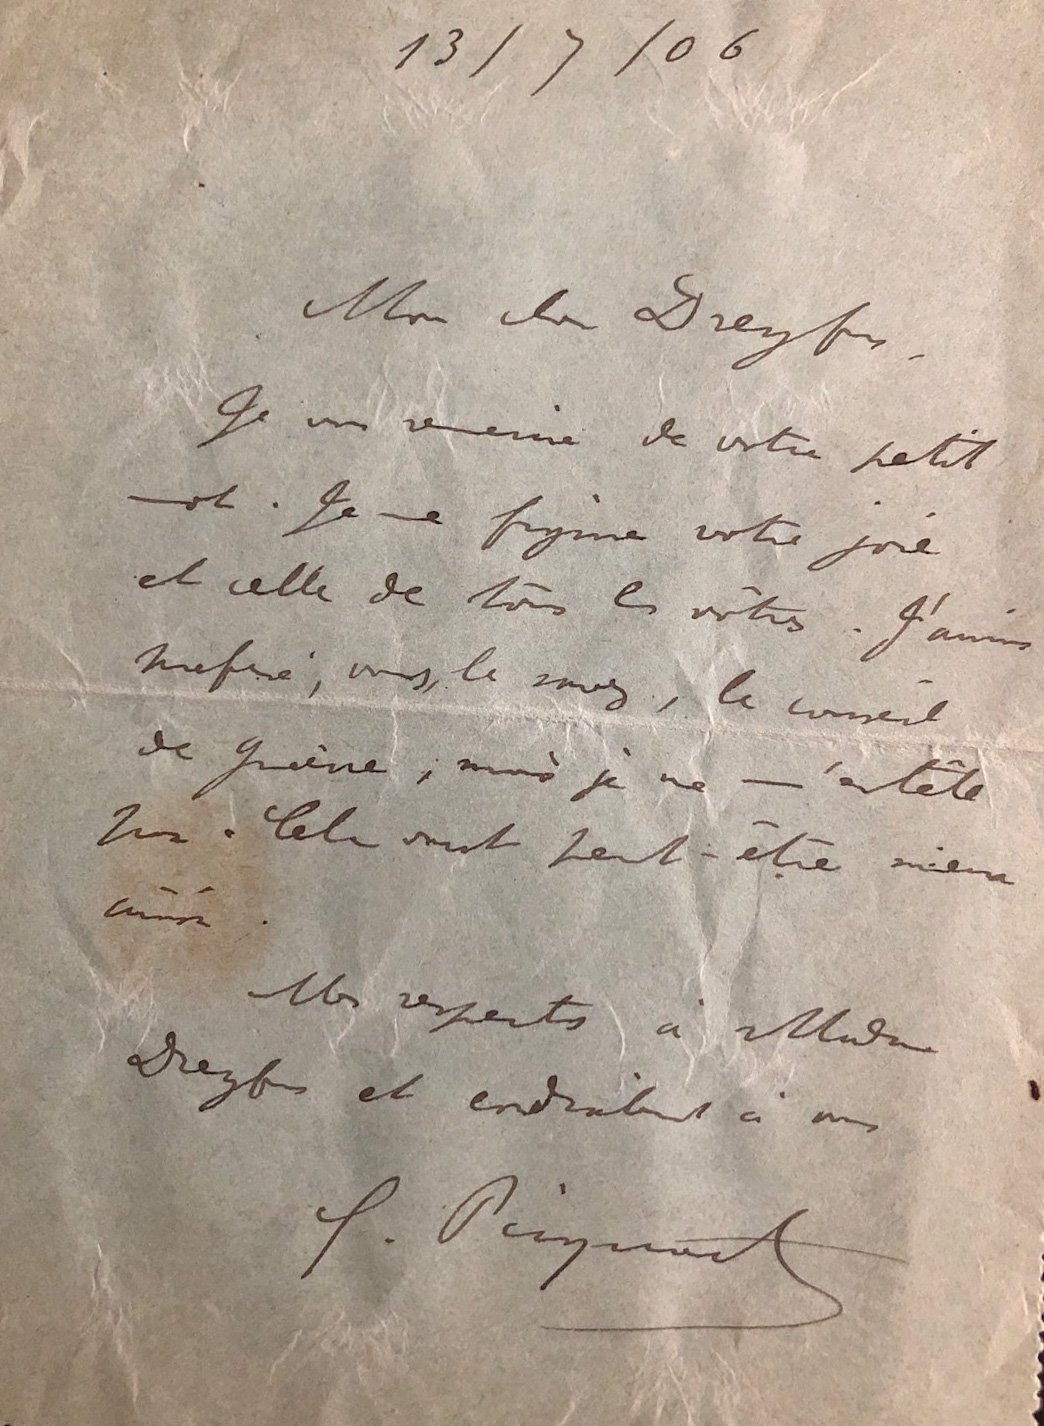 13/7/06
Mon cher Dreyfus,
Je vous remercie de votre petit
mot. Je me figure votre joie
et celle de tous les vôtres. J'aurais
préféré, vous le savez, le conseil
de guerre ; mais je ne m'entête
pas. Cela vaut peut-être mieux
ainsi.
Mes respects à Madame
Dreyfus et cordialement à vous
G. Picquart